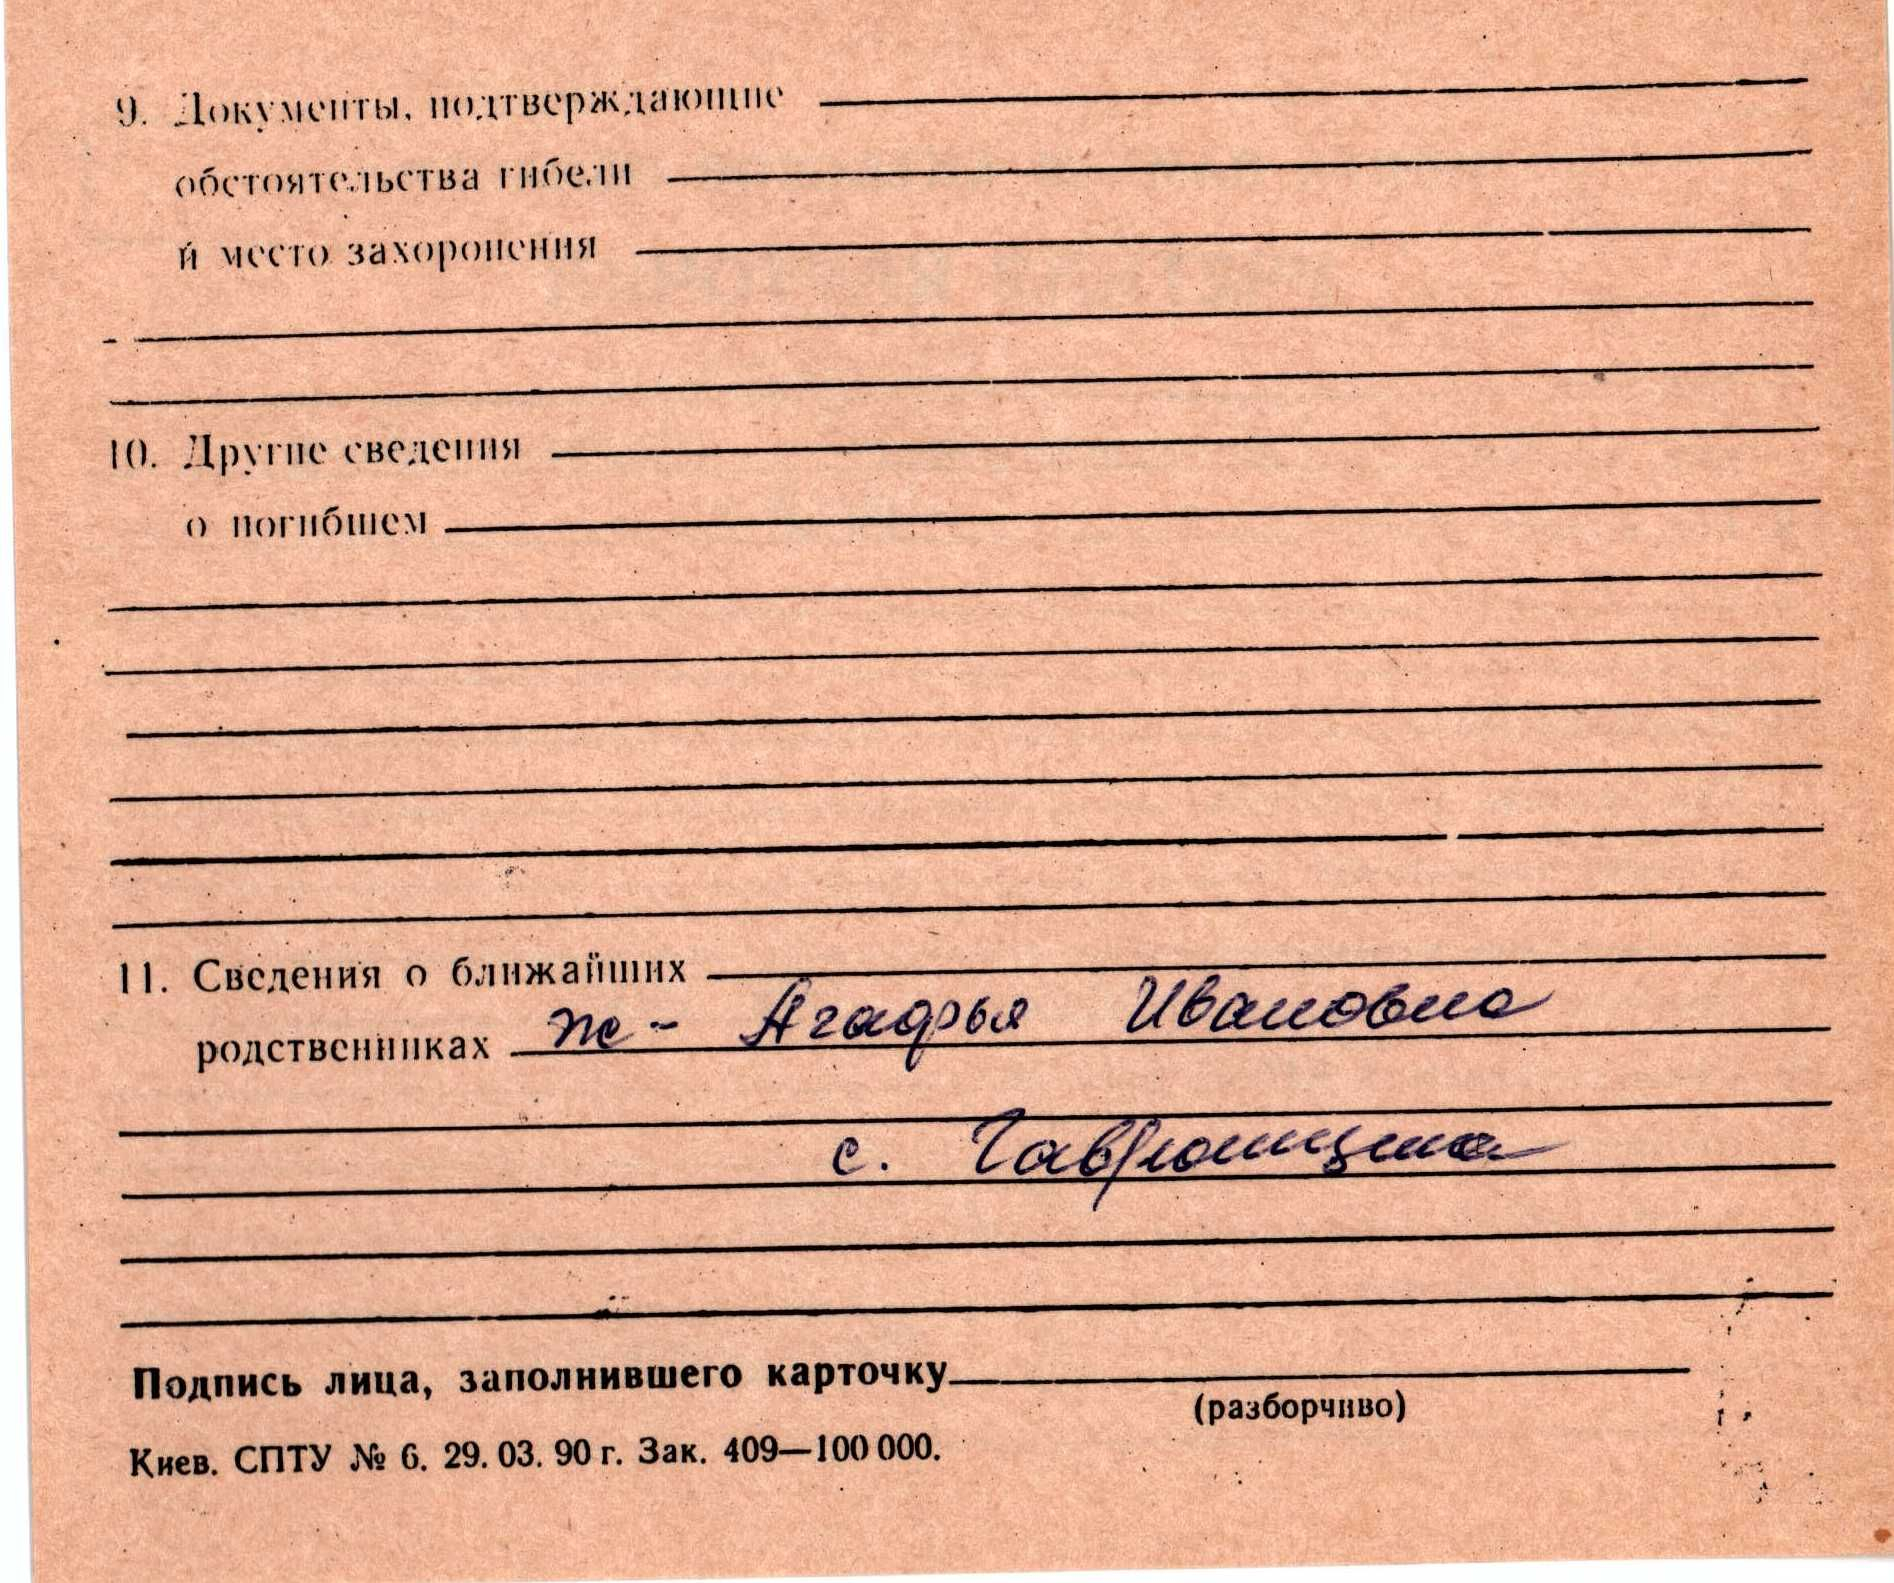 9. Документы, подтверждающие
обстоятельства гибели
и место захоронения
10. Другие сведения
о погибшем
11. Сведения о ближайших
родственниках ж - Агафья Ивановна
с. Гаврющина
Подпись лица, заполнившего карточку
(разборчиво)
Киев. СПТУ № 6. 29. 03. 90 г. Зак. 409—100 000.